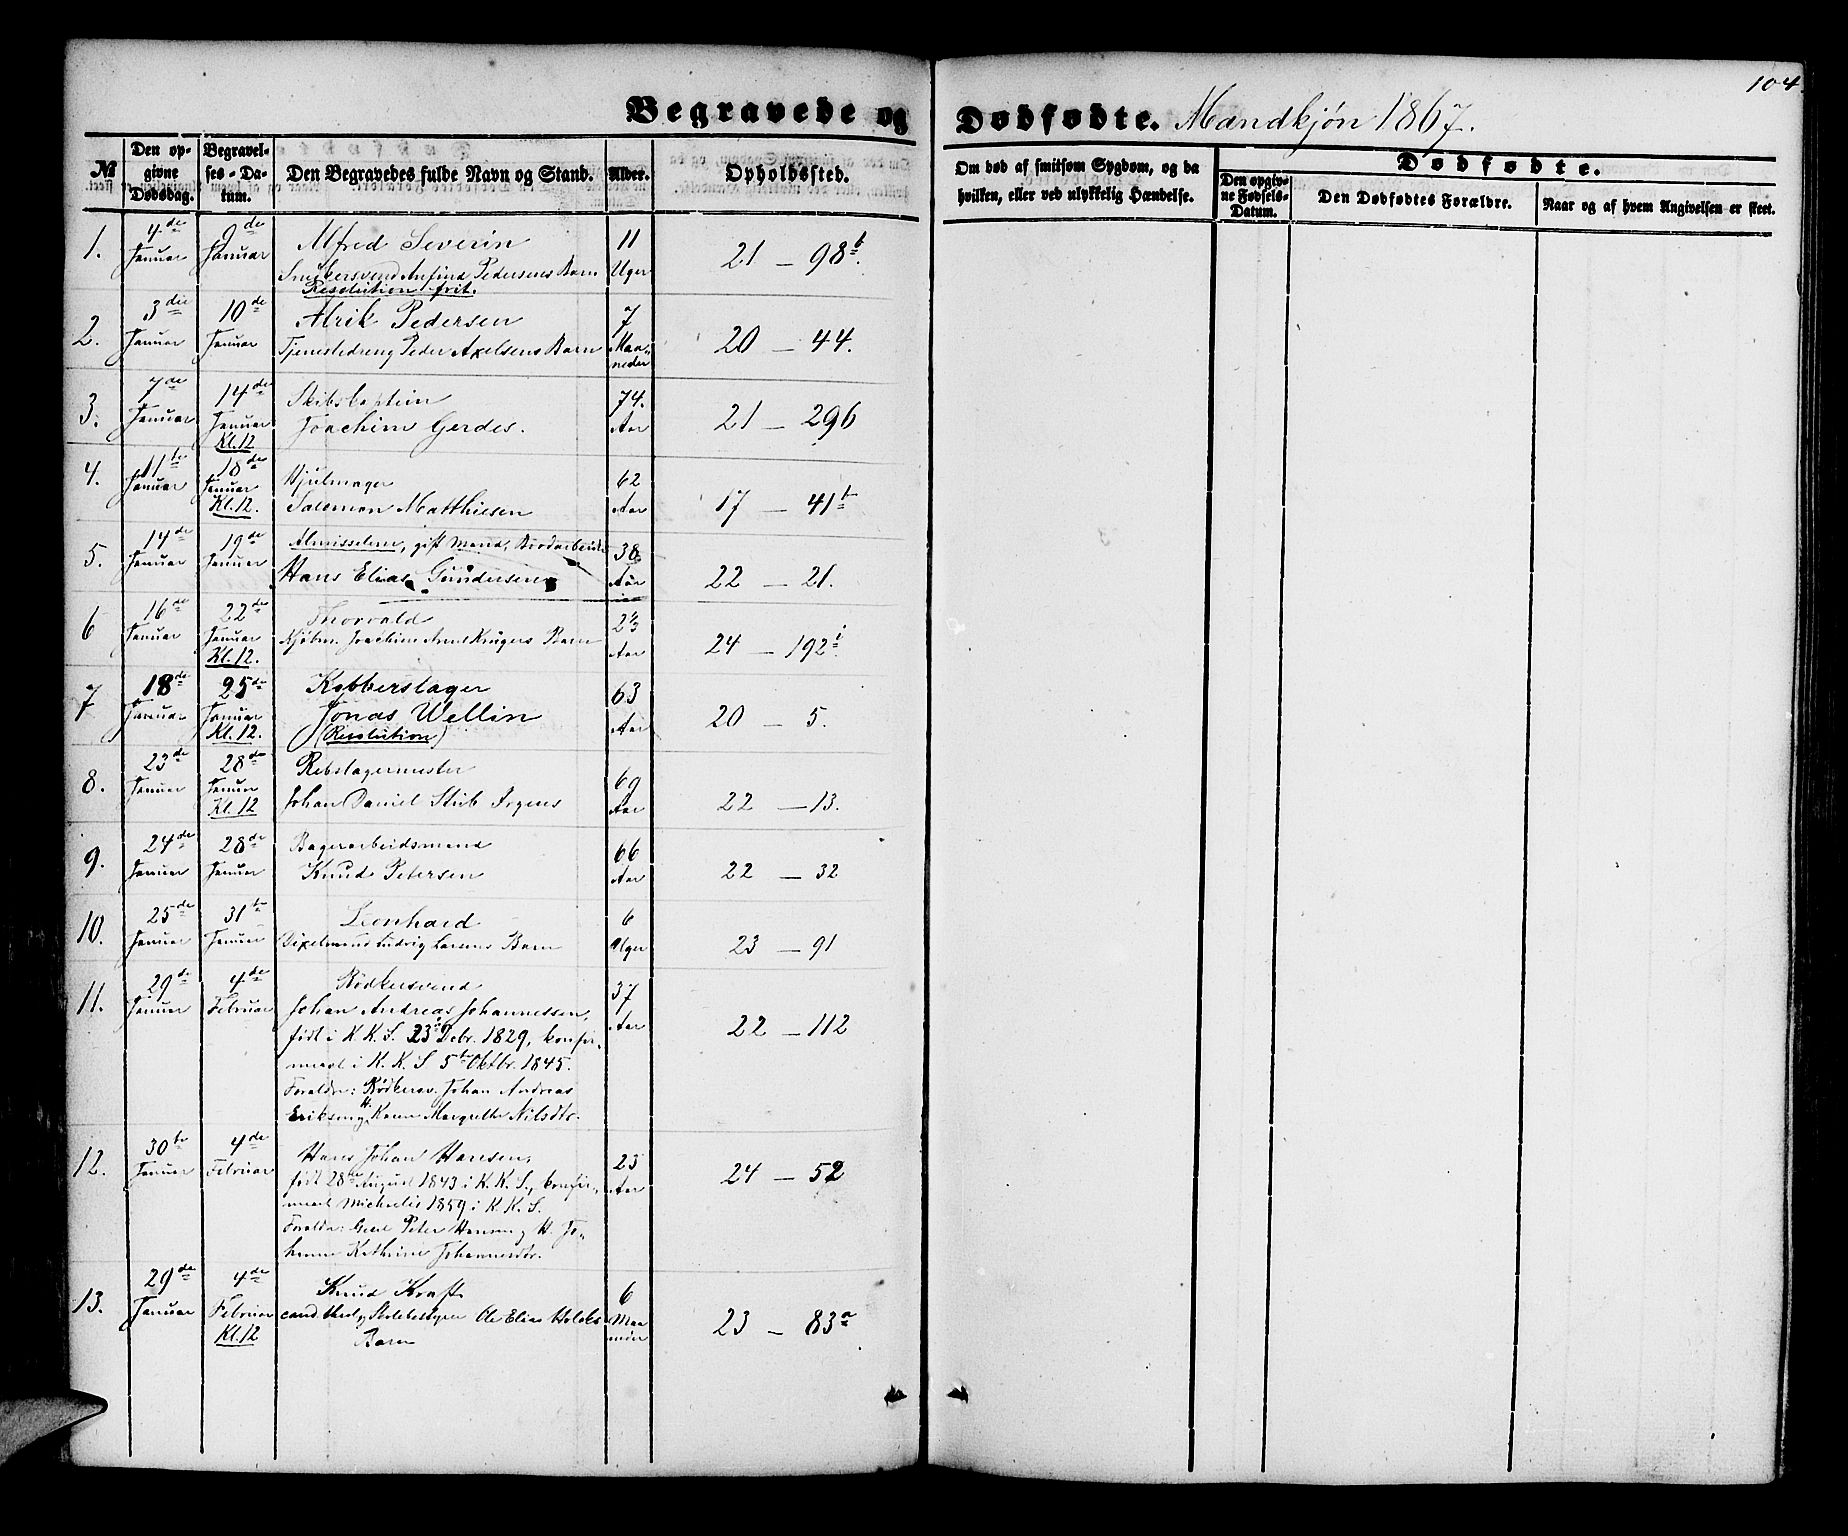 104
Begravede og Dødfødte. Mandkjøn 1867.
№
Den opgivne Dødsdag.
Begravelses-Datum.
Den Begravedes fulde Navn og Stand.
Alder.
Opholdssted.
Om død af smitsom Sygdom, og da hvilken, eller ved ulykkelig Hændelse.
Dødfødte.
Den opgivne Fødsels-Datum.
Den Dødfødtes Forældre.
Naar og af hvem Angivelsen er skeet.
1. 4de Januar 9de Januar Alfred Severin 11 Uger 21 – 98b.
Snedkersvend Pedersens Barn
Resolution frit.
2. 3die Januar 10de Januar Alrik Pedersen 7 Maaneder 20 – 44.
Tjenestedreng Peder Axelsens Barn
3. 7de Januar 14de Januar Kl. 12 Skibskaptein 74. Aar 21 – 296
Joachim Gerdes.
4. 11te Januar 18de Januar Kl. 12. Hjulmager 62 Aar 17 – 41b
Salomon Matthiesen
5. 14de Januar 19de Januar gift Mand, 38 Aar 22 – 21.
Hans Elias Gundersen
6 16de Januar 22de Januar Kl. 12. Thorvald 2⅓ Aar 24 – 192i.
Kjøbm. Joachim Krügers Barn
7 18de Januar 25de Januar Kl. 12. Kobberslager 63 Aar 20 – 5.
Jonas Wellin
(Resolution)
8. 23de Januar 28de Januar Kl. 12 Rebslagermester 69 Aar 22 – 13.
Johan Daniel Stub Irgens
9. 24de Januar 28de Januar Bagerarbeidsmand 66 Aar 22 – 32
Knud Petersen
10. 25de Januar 31te Januar Leonhard 6 Uger 23 – 91
Ludvig Larsens Barn
11. 29de Januar 4de Februar Bødkersvend 37 Aar 22 – 112
Johan Andreas Johannessen,
født i K. K. S. 23de Decbr. 1829, konfir-
meret i K. K. S 5te Oktbr. 1845.
Forældre: Bødkersv. Johan Andreas
Eriksen og H. Karen Margrethe Nilsdtr.
12. 30te Januar 4de Februar Hans Johan Hansen, 23 Aar 24 – 52
født 28de August 1843 i K. K. S., konfir-
meret Michaelis 1859 i K. K. S.
Forældre: Peter Hansen og H. Jo-
hanne Kathrine Johannesdtr.
13. 29de Januar 4de Februar Kl. 12 Knud Kraft 6 Maaneder 23 – 83a
cand. theol. og Skolebestyrer Ole Elias Holcks
Barn